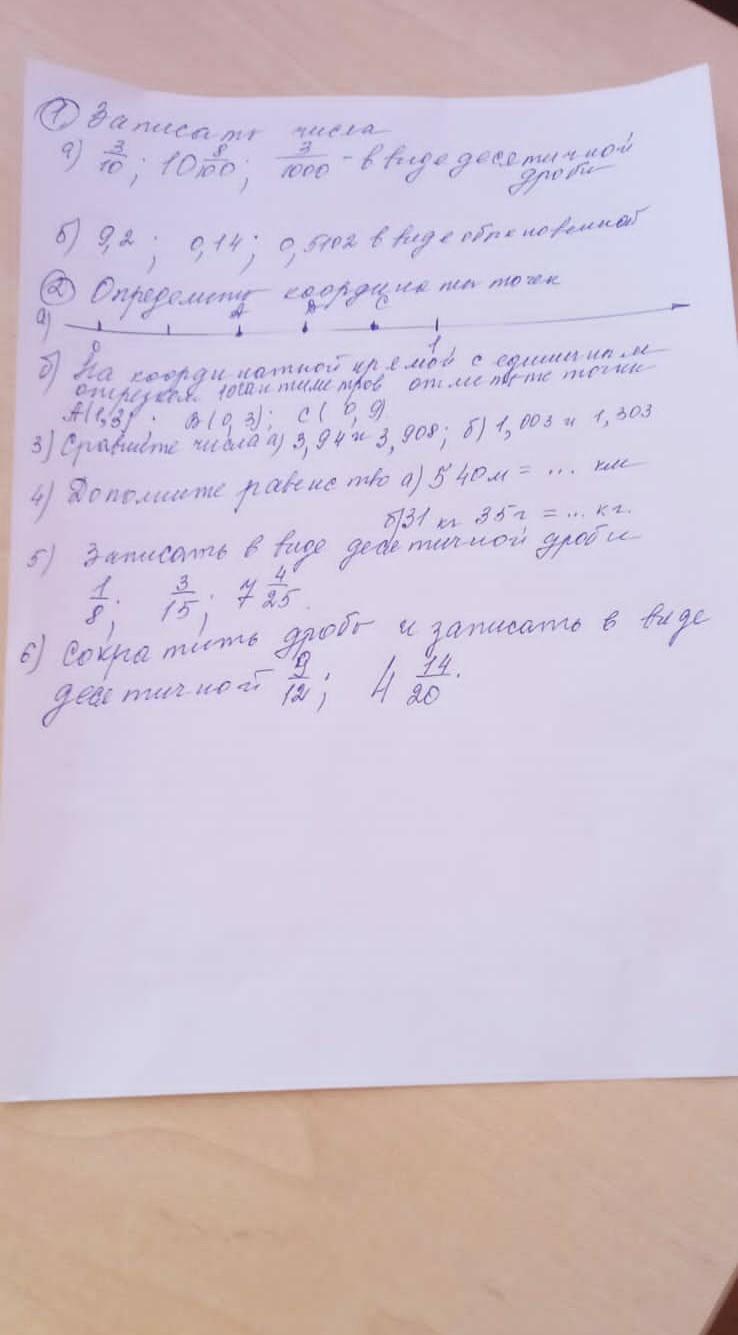 1 Записать числа
а) 3/10; 10 8/100; 3/1000 - в виде десетичной
дроби
б) 9,2; 0,14; 0,5102 в виде обыкновенной
2 Определить координаты точек
а) A D C
0 1
б) На координатной прямой с единичным
отрезком 10 сантиметров отметьте точки
A(1,3); B(0,3); C(0,9)
3) Сравните числа а) 3,94 и 3,908; б) 1,003 и 1,303
4) Дополните равенство а) 540м = ... км
б) 31 кг 35г = ... кг.
5) Записать в виде десетичной дроби
1/8; 3/15; 7 4/25.
6) Сократить дробь и записать в виде
десетичной 9/12; 4 14/20.